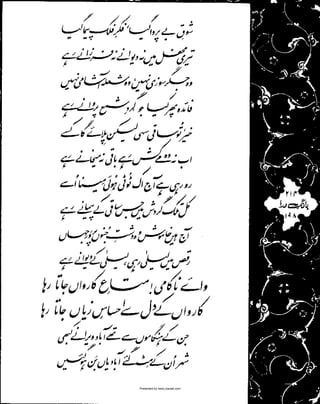 شوق بے پروا گیا، فکرِ فلک پیما گیا
تیری محفل میں نہ دیوانے نہ فرزانے رہے
وہ جگر سوزی نہیں، وہ شعلہ آشامی نہیں
فائدہ پھر کیا جو گردِ شمع پروانے رہے
خیر، تو ساقی سہی لیکن پلائے گا کسے
اب نہ وہ مے کش رہے باقی نہ مے خانے رہے
رو رہی ہے آج اک ٹوٹی ہوئی مینا اسے
کل تلک گردش میں جس ساقی کے پیمانے رہے
آج ہیں خاموش وہ دشتِ جنوں پرور جہاں
رقص میں لیلیٰ رہی، لیلیٰ کے دیوانے رہے
وائے ناکامی! متاعِ کارواں جاتا رہا
کارواں کے دل سے احساسِ زیاں جاتا رہا
جن کے ہنگاموں سے تھے آباد ویرانے کبھی
شہر ان کے مٹ گئے آبادیاں بن ہو گئیں
۲۱۳
بانگِ درا
۱۹۸
Presented by www.ziaraat.com